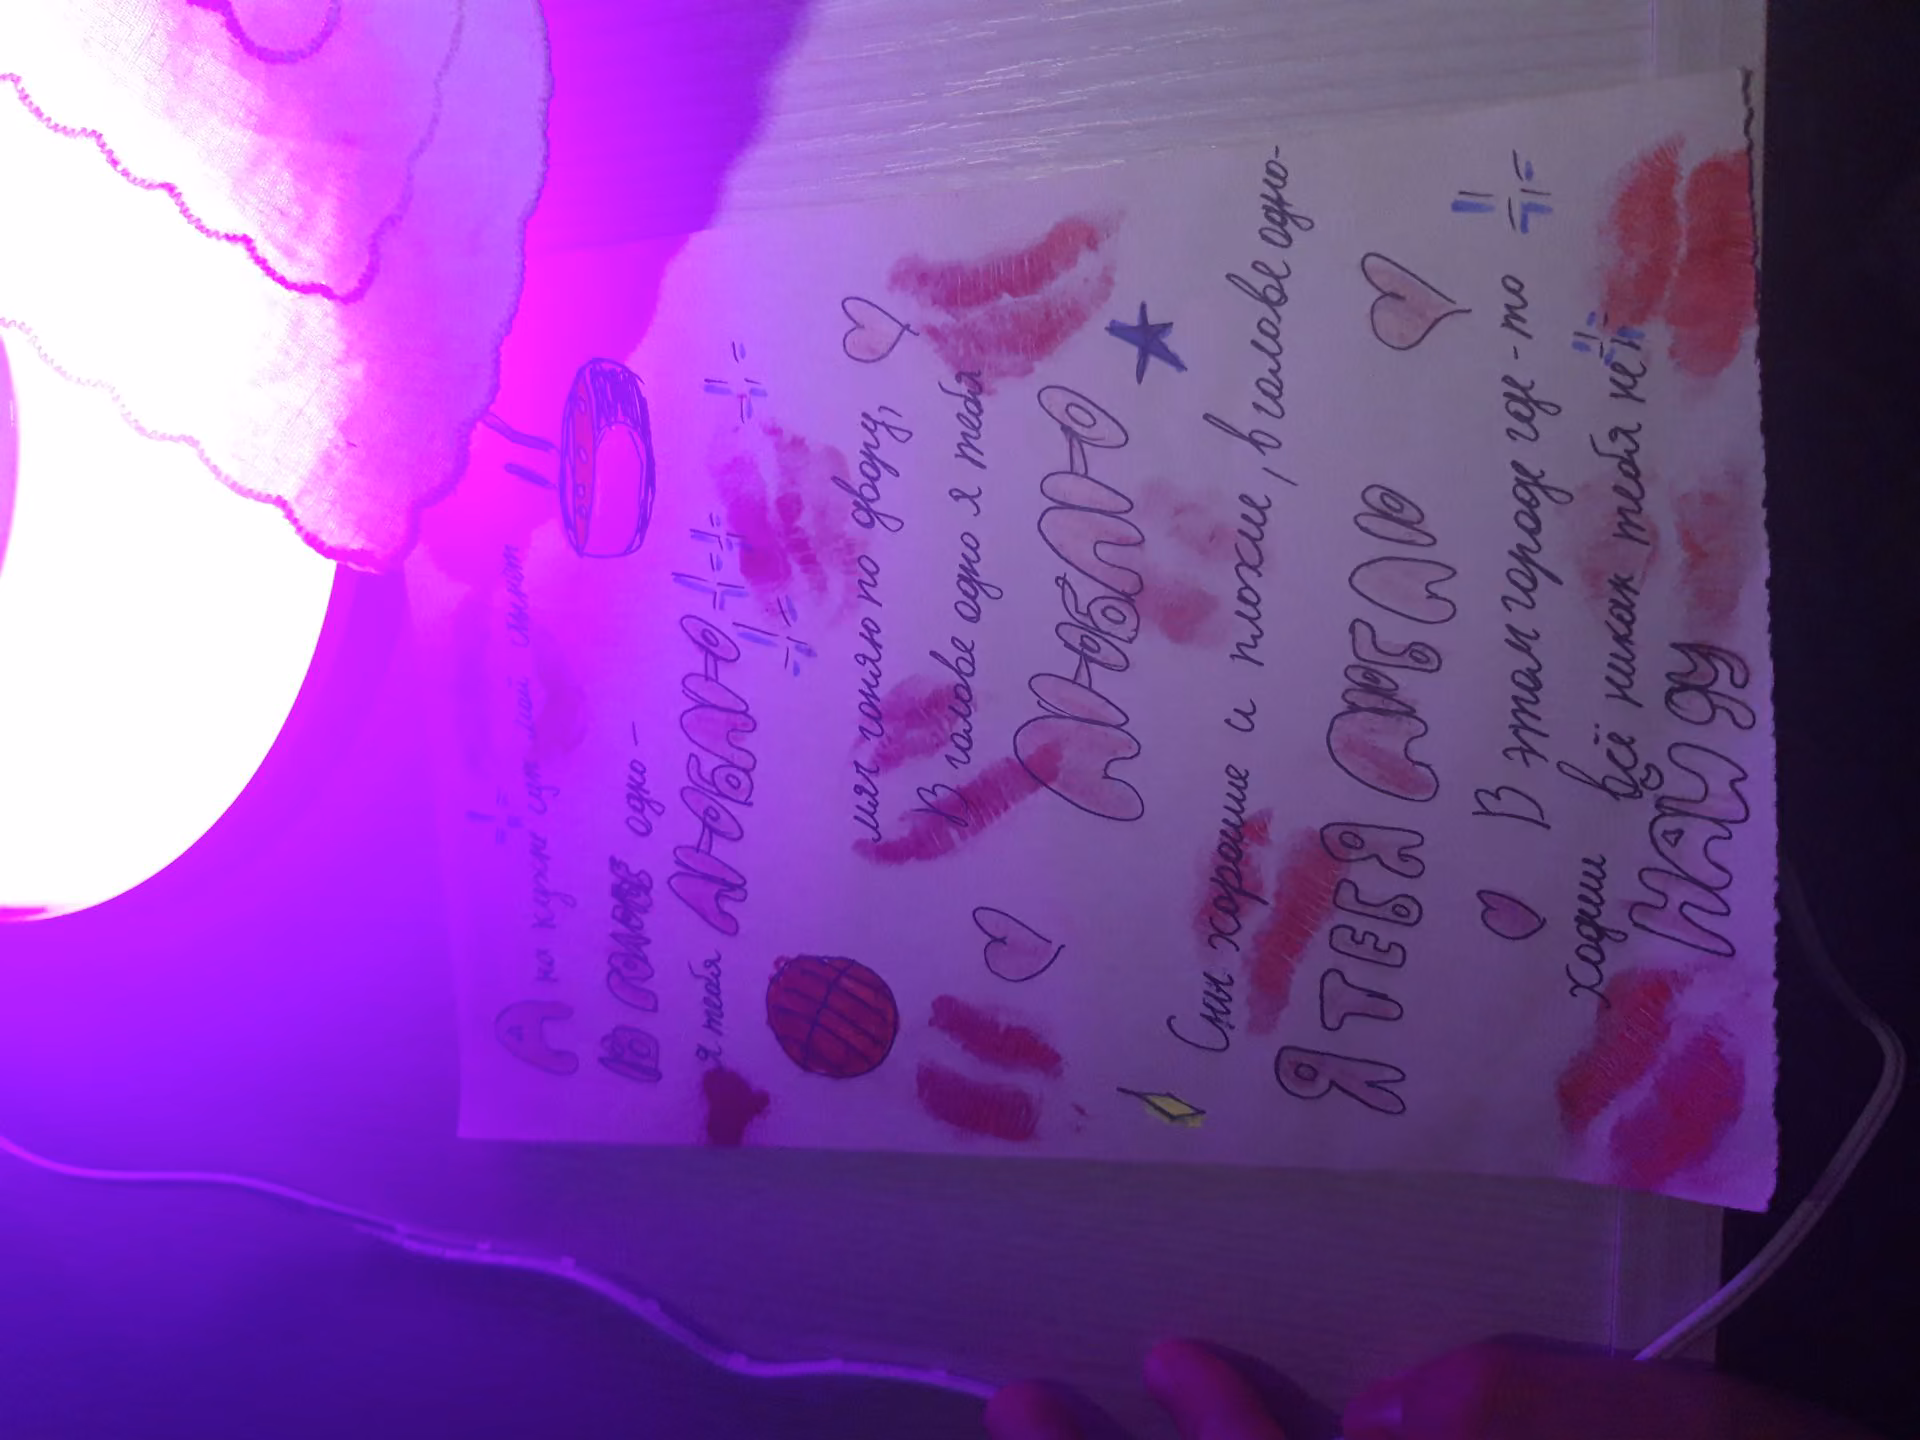 А на кухне суп мой стынет
В голове одно –
я тебя люблю
мяч гоняю по двору,
В голове одно я тебя
люблю
Сны хорошие и плохие, в голове одно-
Я ТЕБЯ ЛЮБЛЮ
В этом городе где-то
ходиш всё никак тебя не
найду